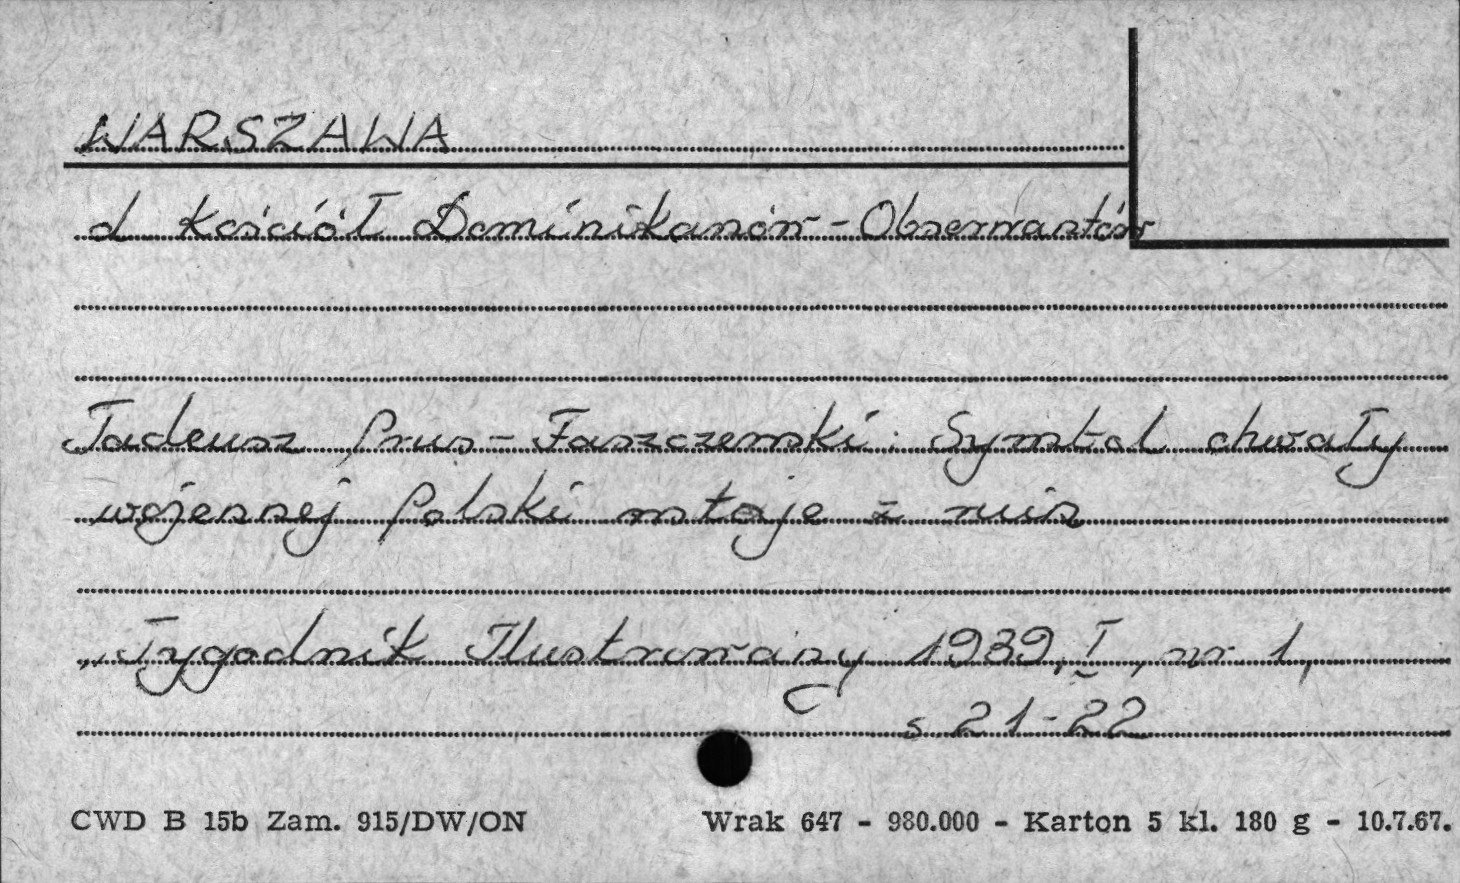 WARSZAWA
d Kościół Dominikanów-Obserwantów
Tadeusz Prus-Faszczewski: Symbol chwały
wojennej Polski wstaje z ruin
„Tygodnik Ilustrowany 1939, I, nr 1,
s 21-22
CWD B 15b Zam. 915/DW/ON Wrak 647 - 980.000 - Karton 5 kl. 180 g - 10.7.67.